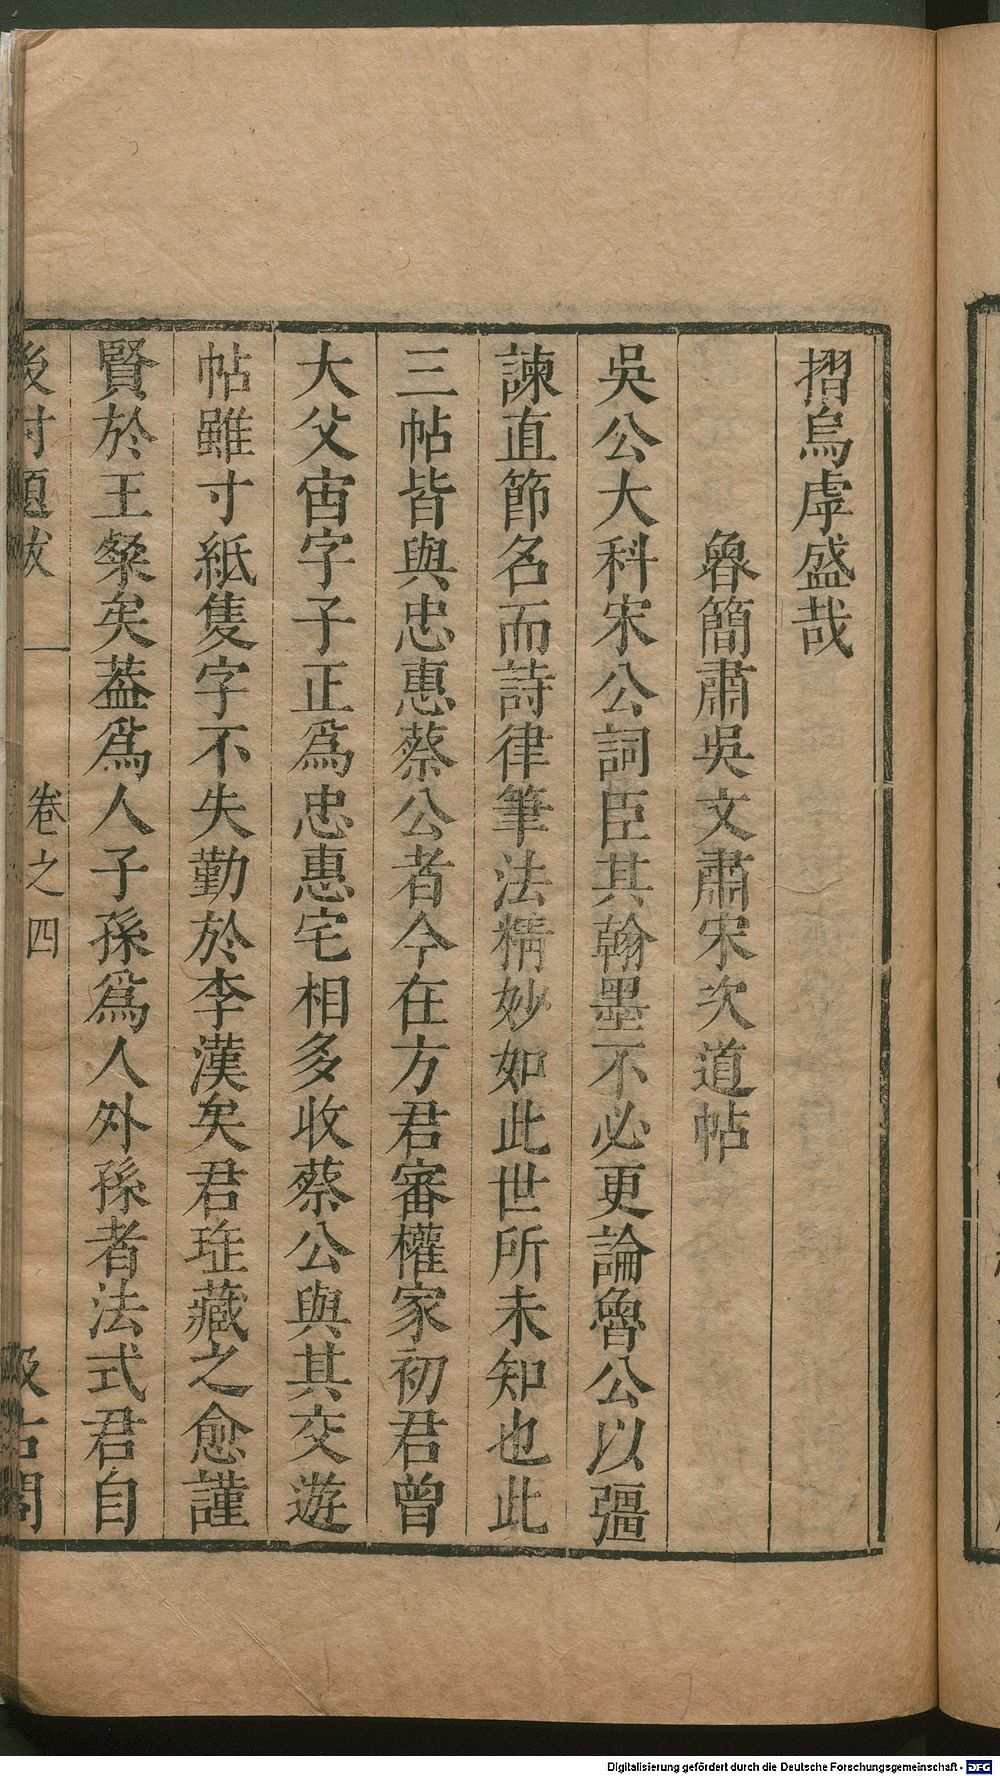 摺烏虖盛哉
魯簡肅吳文肅宋次道帖
吳公大科宋公詞臣其翰墨不必更論魯公以彊
諫直節名而詩律筆法精妙如此世所未知也此
三帖皆與忠惠蔡公者今在方君審權家初君曾
大父宙字子正爲忠惠宅相多收蔡公與其交遊
帖雖寸紙隻字不失勤於李漢矣君𤤴藏之愈謹
賢於王粲矣葢爲人子孫爲人外孫者法式君自
後村題跋
卷之四
汲古閣
Digitalisierung gefördert durch die Deutsche Forschungsgemeinschaft - DFG